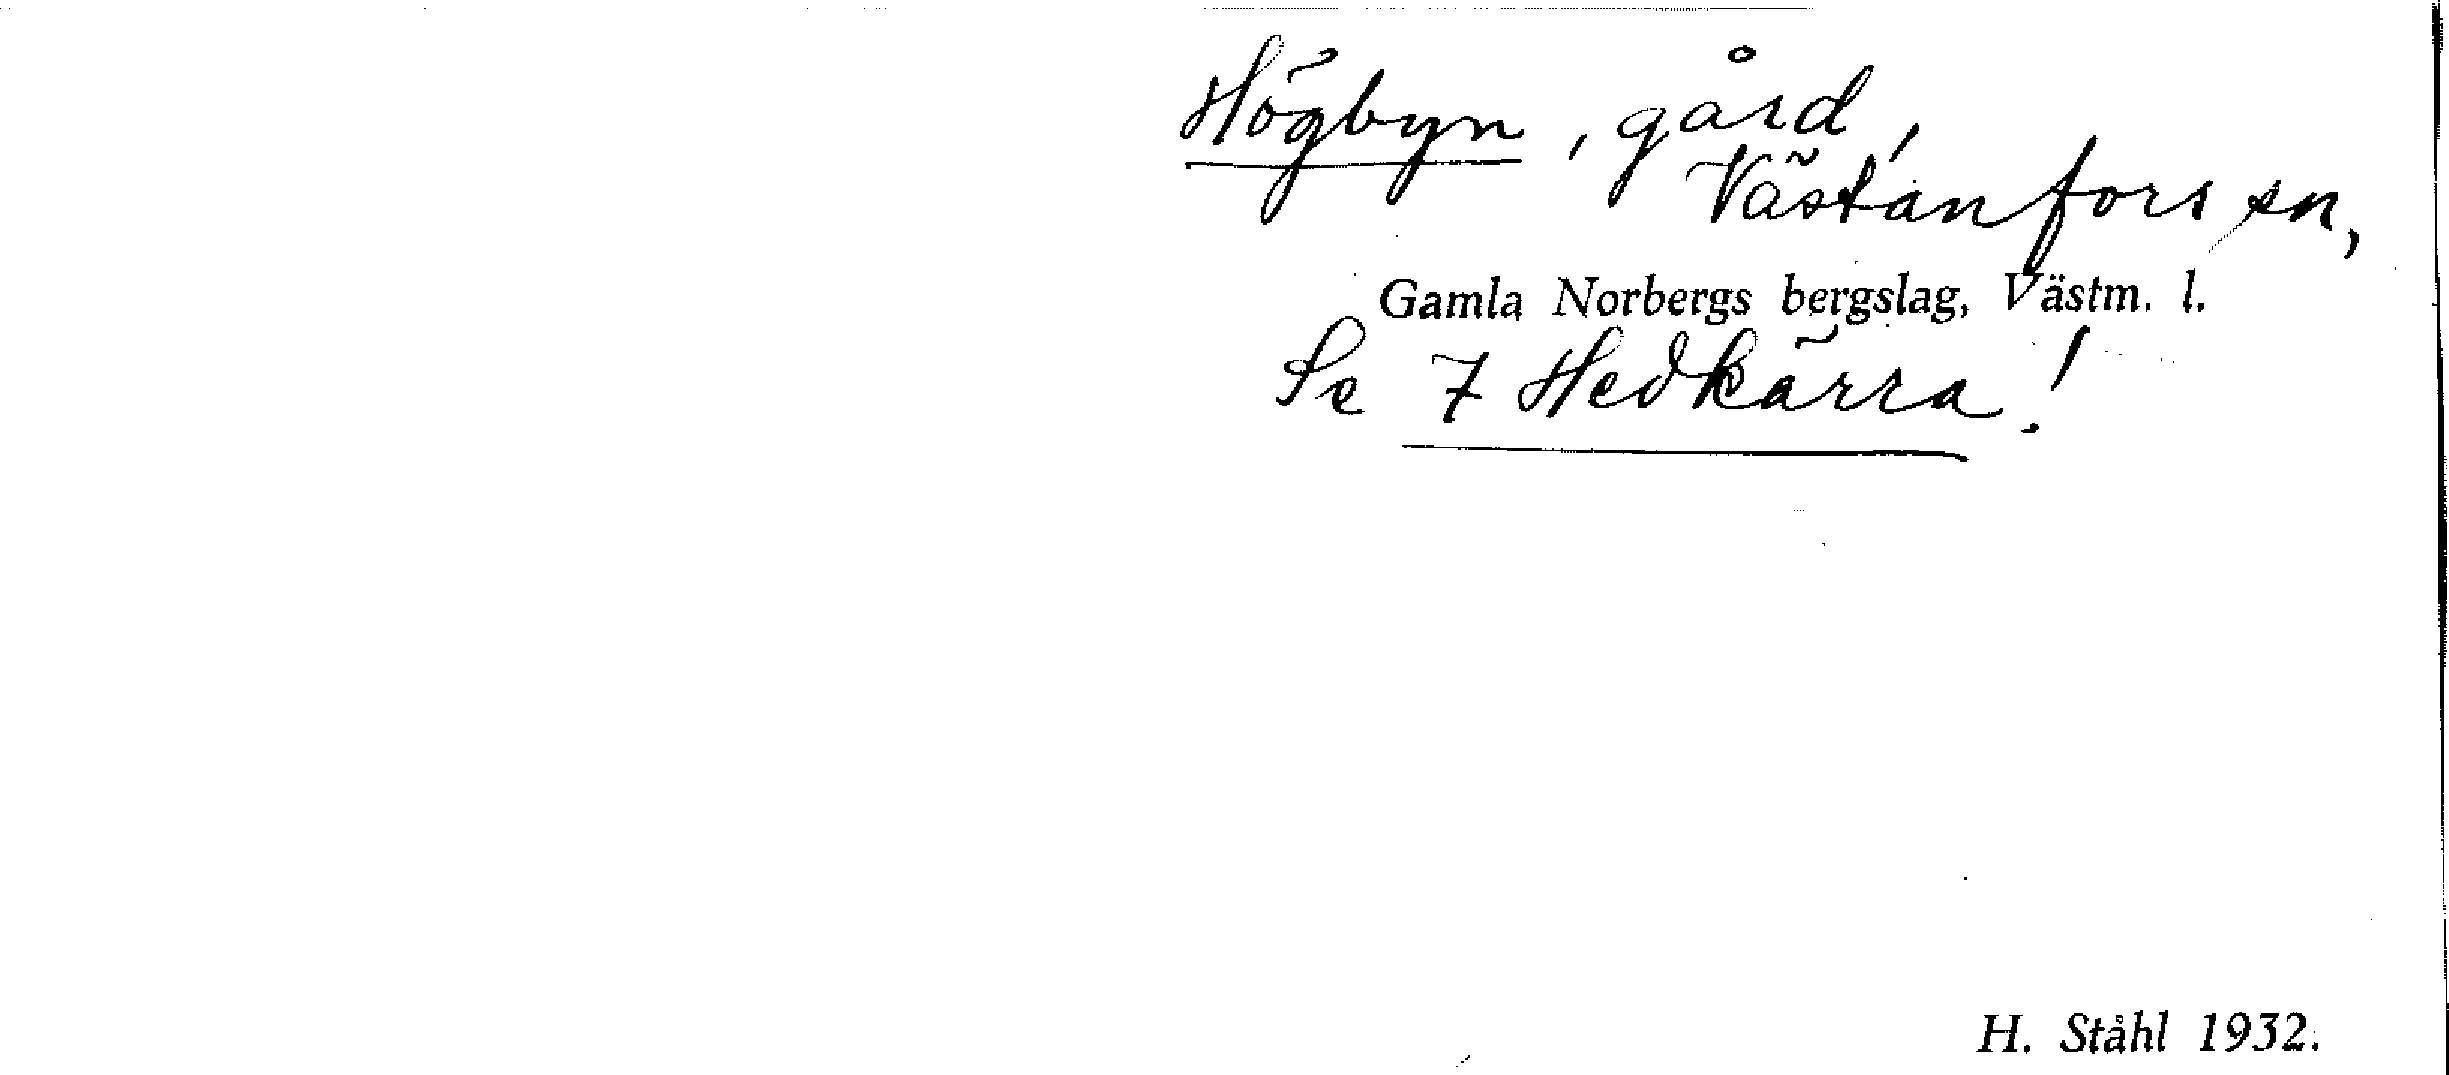 Högbyn, gård,
Västanfors sn,
Gamla Norbergs bergslag, Västm. l.
Se 7 Hedkärra!
H. Ståhl 1932.